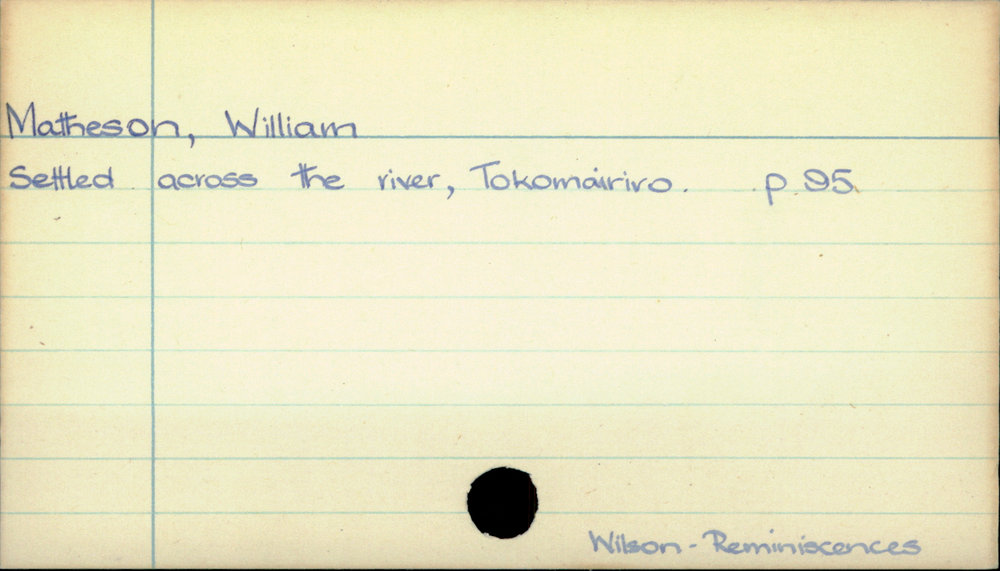 Matheson, William
Settled across the river, Tokomairiro. p.95
Wilson - Reminiscences